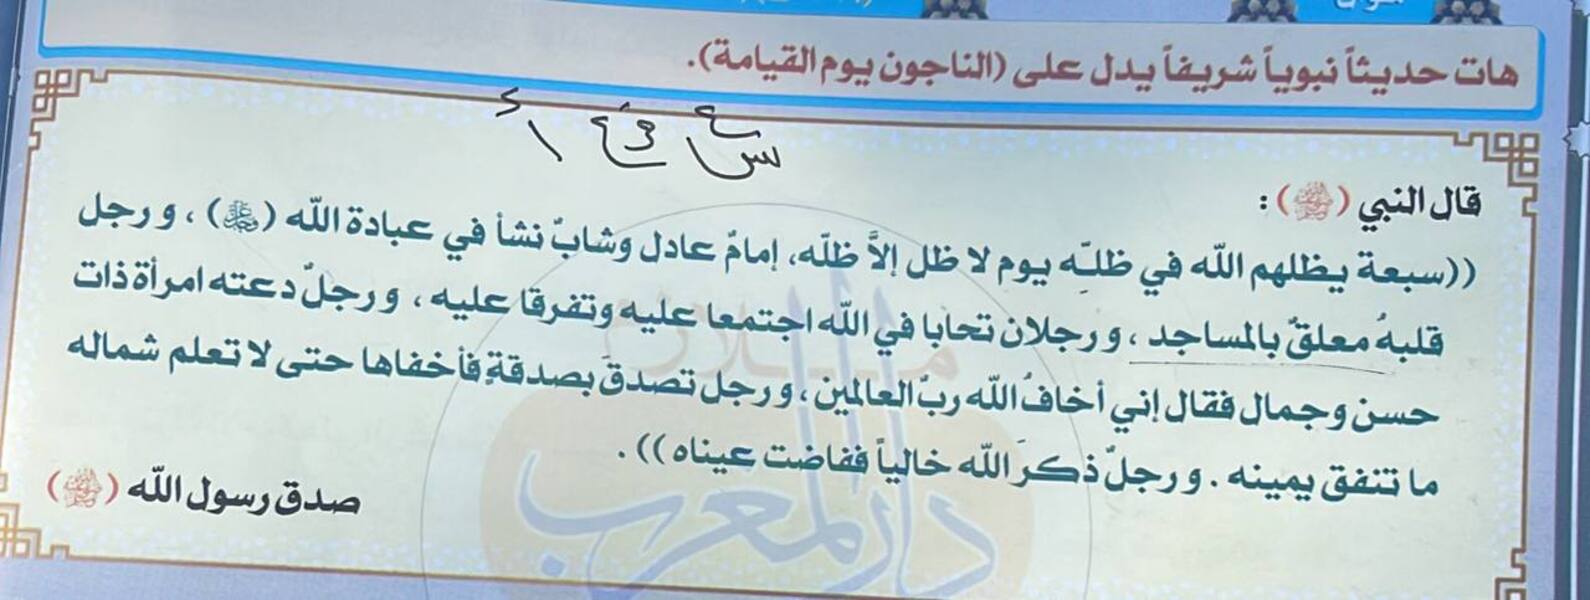 هات حديثاً نبوياً شريفاً يدل على (الناجون يوم القيامة).
قال النبي (ﷺ) :
((سبعة يظلهم الله في ظلّه يوم لا ظل إلاَّ ظلّه، إمامٌ عادل وشابٌ نشأ في عبادة الله (ﷻ) ، ورجل
قلبهُ معلقٌ بالمساجد ، ورجلان تحابا في الله اجتمعا عليه وتفرقا عليه ، ورجلٌ دعته امرأة ذات
حسن وجمال فقال إني أخافُ الله ربّ العالمين ، ورجل تصدقَ بصدقةٍ فأخفاها حتى لا تعلم شماله
ما تنفق يمينه . ورجلٌ ذكرَ الله خالياً ففاضت عيناه)) .
صدق رسول الله (ﷺ)
دار المغرب